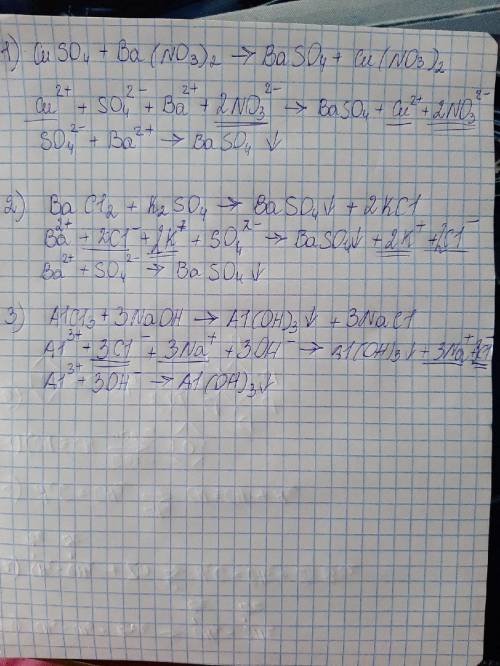 1) CuSO₄ + Ba(NO₃)₂ → BaSO₄ + Cu(NO₃)₂
Cu²⁺ + SO₄²⁻ + Ba²⁺ + 2NO₃²⁻ → BaSO₄ + Cu²⁺ + 2NO₃²⁻
SO₄²⁻ + Ba²⁺ → BaSO₄ ↓
2) BaCl₂ + K₂SO₄ → BaSO₄↓ + 2KCl
Ba²⁺ + 2Cl⁻ + 2K⁺ + SO₄²⁻ → BaSO₄↓ + 2K⁺ + 2Cl⁻
Ba²⁺ + SO₄²⁻ → BaSO₄↓
3) AlCl₃ + 3NaOH → Al(OH)₃↓ + 3NaCl
Al³⁺ + 3Cl⁻ + 3Na⁺ + 3OH⁻ → Al(OH)₃↓ + 3Na⁺ + 3Cl⁻
Al³⁺ + 3OH⁻ → Al(OH)₃↓